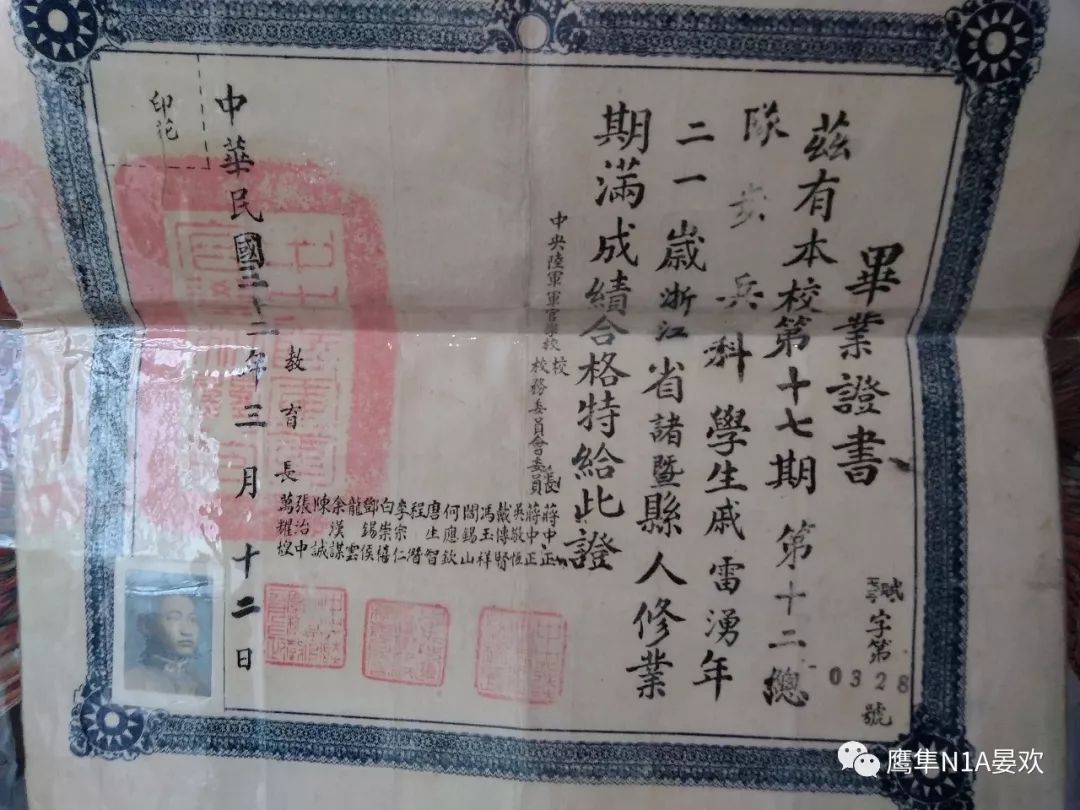 畢業證書
茲有本校第十七期 第十二總
隊步兵科 學生戚雷湧年
二一歲浙江省諸暨縣人修業
期滿成績合格特給此證
中央陸軍軍官學校
校長 蔣中正
校務委員會委員
蔣中正
吳敬恒
戴傳賢
馮玉祥
閻錫山
何應欽
唐生智
程潛
李宗仁
白崇禧
鄧錫侯
龍雲
余漢謀
陳誠
張治中
教育長 萬耀煌
中華民國三十二年三月十二日
印花
字第
0328
號
鹰隼N1A晏欢